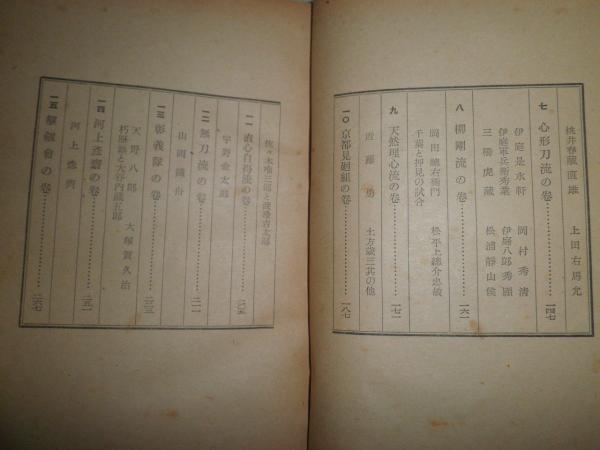 桃井春蔵直雄 上田右馬允
七 心形刀流の巻…………一四七
伊庭是水軒 岡村秀清
伊庭軍兵衛秀業 伊庭八郎秀穎
三橋虎蔵 松浦静山侯
八 柳剛流の巻…………一六一
岡田總右衛門 松平上總介忠敏
千葉と押見の試合
九 天然理心流の巻…………一七一
近藤勇 土方歳三其の他
一〇 京都見廻組の巻…………一八七
佐々木唯三郎と渡邊吉太郎
一一 直心自得流の巻…………二〇五
宇野金太郎
一二 無刀流の巻…………二一一
山岡鐵舟
一三 彰義隊の巻…………二三三
天野八郎 大塚賀久治
朽原鎭と大谷内藏五郎
一四 河上彦齋の巻…………二五一
河上彦齋
一五 撃劍會の巻…………二六七